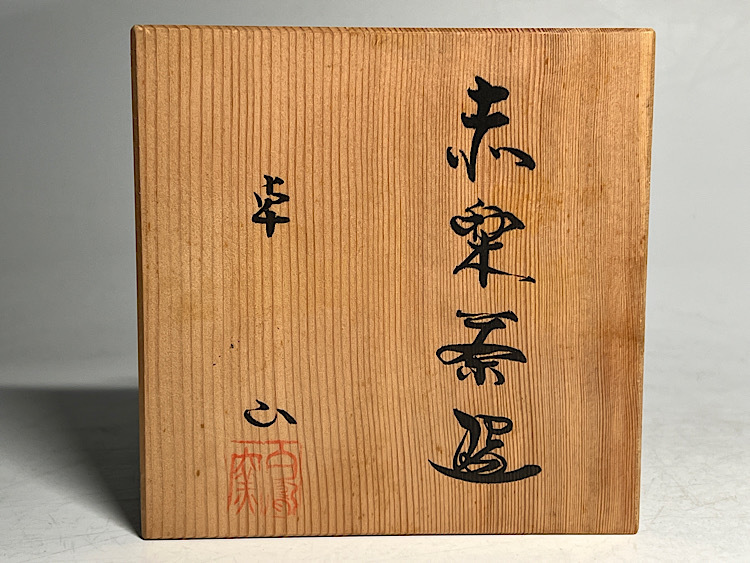 赤楽茶碗
卓山